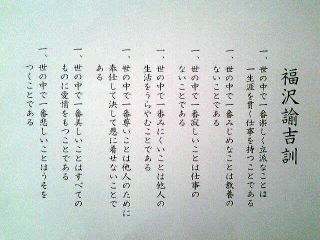 福沢諭吉訓
一、世の中で一番楽しく立派なことは
一生涯を貫く仕事を持つことである
一、世の中で一番みじめなことは教養の
ないことである
一、世の中で一番淋しいことは仕事の
ないことである
一、世の中で一番みにくいことは他人の
生活をうらやむことである
一、世の中で一番尊いことは他人のために
奉仕して決して恩に着せないことで
ある
一、世の中で一番美しいことはすべての
ものに愛情をもつことである
一、世の中で一番悲しいことはうそを
つくことである